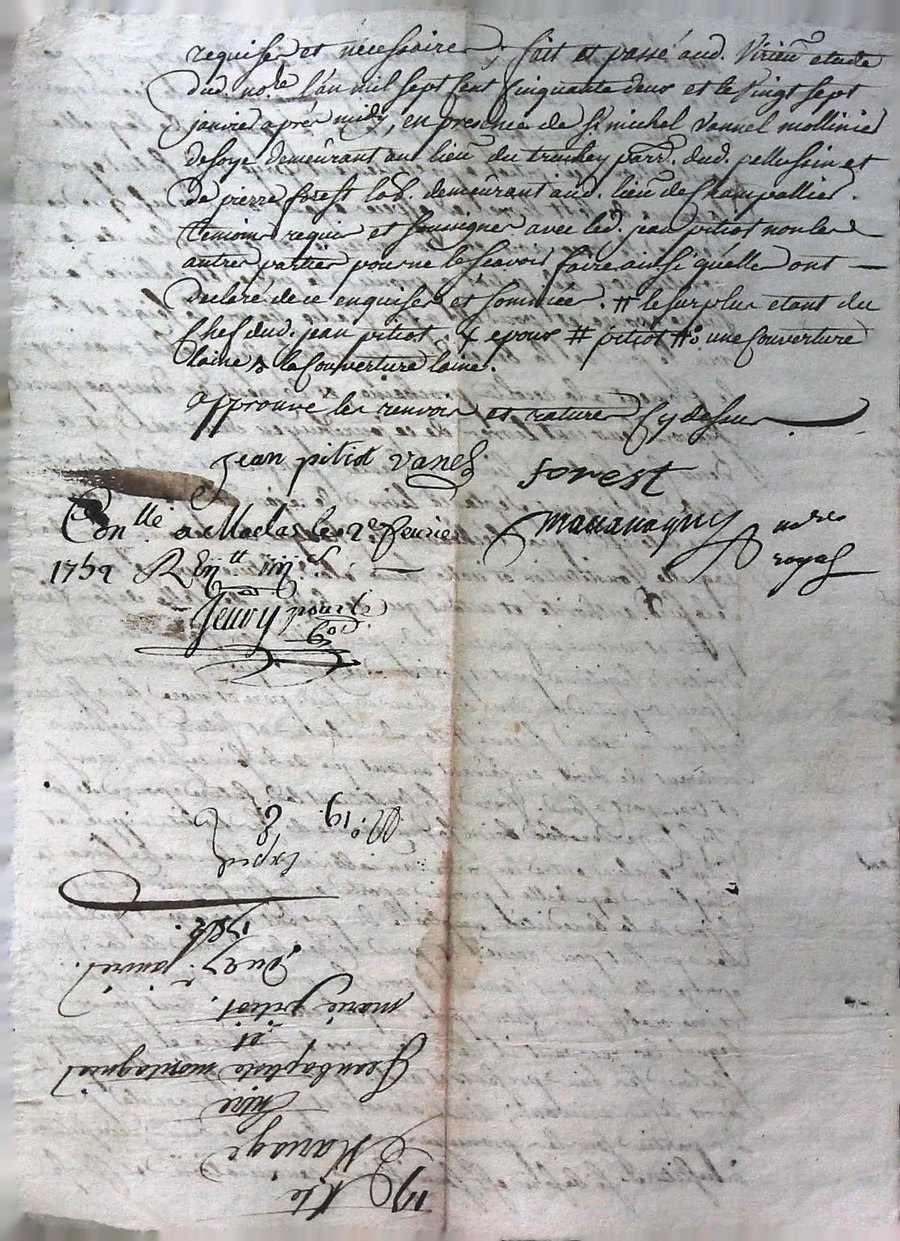 requises et nécessaires, fait et passé aud. Virieu etude
dud. no.re l'an mil sept cent cinquante deux et le vingt sept
janvier après midy, en presence de Sr michel vannel mollinier
de soye demeurant au lieu du truchey parr. dud. pellussin et
de pierre forest lab. demeurant aud. lieu de Champallier
temoins requis et soussignes avec led. jean pitiot non les
autres parties pour ne le scavoir faire ainsi qu'elles ont
declaré de ce enquises et sommees. # le surplus etant du
chef dud. jean pitiot. epoux # pitiot # une couverture
laine & la couverture laine.
approuve les renvois et ratures cy dessus
jean pitiot vanel
forest
Con.llé a Maclas le 2e fevrier
1752
nore
royal
pour le
N.o 19.
exped
19
Mariage
Entre
Jean baptiste montagnier
et
marie pitiot.
Du 27.e janvier
1752.